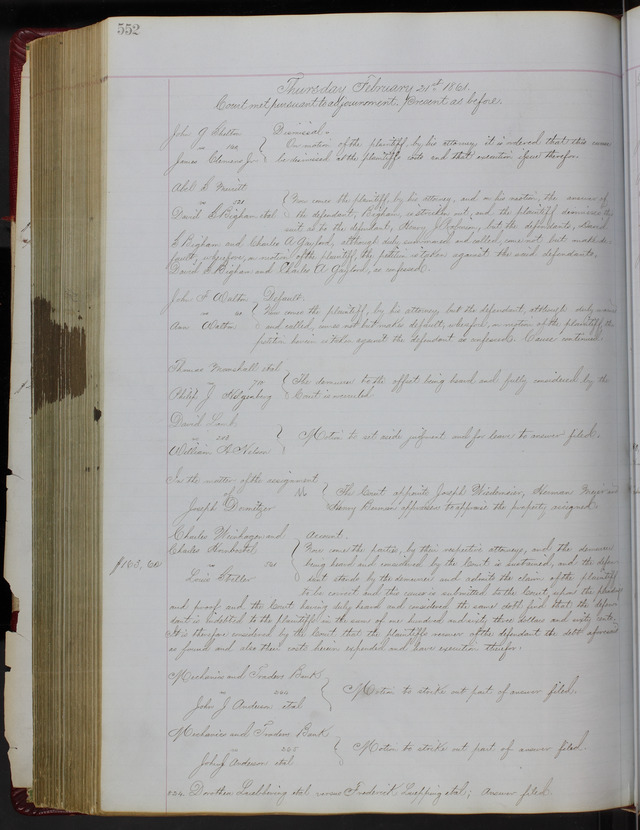 552
Thursday February 21st 1861
Court met pursuant to adjournment. Present as before.
John G. Dismissal.
On motion of the plaintiff by his attorney it is ordered that this cause
James Clemens Jr be dismissed at the plaintiff's costs and that execution issue therefor.
Abel
Now comes the plaintiff, by his attorney, and on his motion, the answer of
David L Bigham et al the defendant, Bigham, is stricken out, and the plaintiff dismisses the
suit as to the defendant, Henry J but the defendants, David
L Bigham and Charles A Gaylord, although duly summoned and called, come not but make de-
fault, wherefore, on motion of the plaintiff, the petition is taken against the said defendants,
David L Bigham and Charles A. Gaylord, as confessed.
John F Walton Default.
Now comes the plaintiff, by his attorney, but the defendant, although duly
Ann Walton and called, comes not but makes default, wherefore, on motion of the plaintiff, the
petition herein is taken against the defendant as confessed. Cause continued.
Thomas Marshall et al
The demurrer to the offset being heard and fully considered by the
Philip J Court is overruled
David
203
Motion to set aside judgment and for leave to answer filed.
William H. Nelson
In the matter of the assignment
of No The Court appoints Joseph Herman and
Joseph Henry appraisers to appraise the property assigned.
Charles and Account.
Charles Now come the parties, by their respective attorneys, and the demurrer
$163,60 being heard and considered by the Court is sustained, and the defen-
Louis dant stands by the demurrer and admits the claim of the plaintiffs
to be correct and this cause is submitted to the Court, upon the pleadings
and proof and the Court having duly heard and considered the same doth find that the defen-
dant is indebted to the plaintiffs in the sum of one hundred and sixty three dollars and sixty cents.
It is therefore considered by the Court that the plaintiffs recover of the defendant the debt aforesaid
as found and also their costs herein expended and have execution therefor.
Mechanics and Traders Bank
244
Motion to strike out part of answer filed.
John J Anderson et al
Mechanics and Traders Bank
245
Motion to strike out part of answer filed.
John J Anderson et al
Dorothea et al versus Frederick et al; Answer filed.